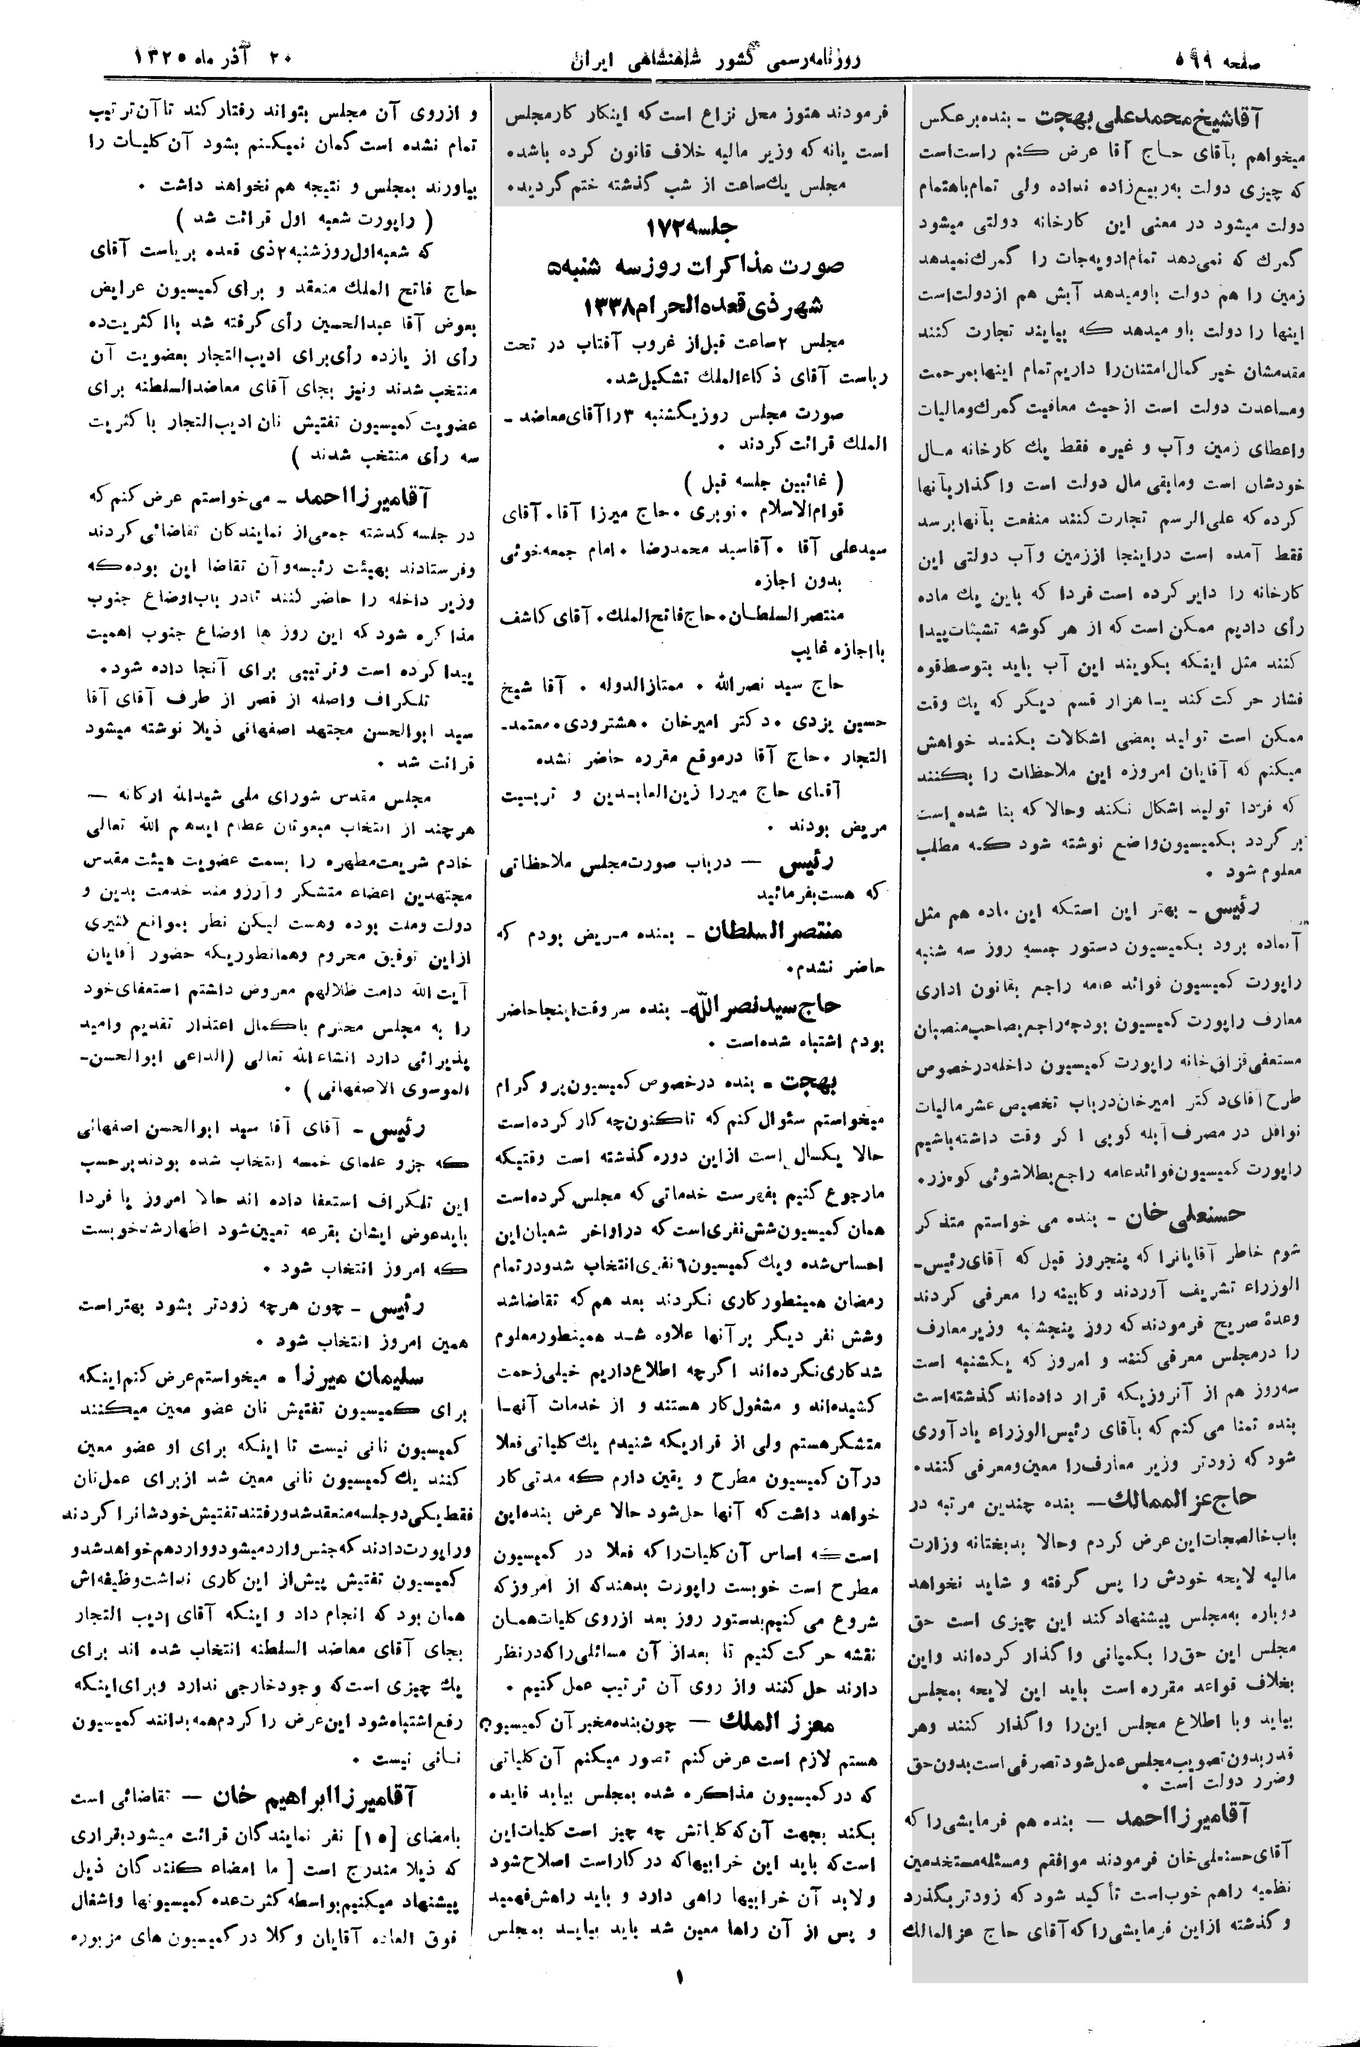 صفحه ۵۹۹
روزنامه رسمی کشور شاهنشاهی ایران
۲۰ آذر ماه ۱۳۲۵
آقا شیخ محمد علی بهجت - بنده بر عکس
میخواهم بآقای حاج آقا عرض کنم راست است
که چیزی دولت به ربیع زاده نداده ولی تمام باهتمام
دولت میشود در معنی این کارخانه دولتی میشود
گمرك که نمی‌دهد تمام ادویه جات را گمرك نمیدهد
زمین را هم دولت باومیدهد آبش هم از دولت است
اینها را دولت باو میدهد که بیایند تجارت کنند
مقدمشان خیر کمال امتنان را داریم تمام اینها بمرحمت
ومساعدت دولت است از حیث معافیت گمرك و مالیات
واعطای زمین و آب و غیره فقط یك کارخانه مال
خودشان است ومابقی مال دولت است واگذار بآنها
کرده که علی الرسم تجارت کنند منفعت بآنها برسد
فقط آمده است در اینجا از زمین و آب دولتی این
کارخانه را دایر کرده است فردا که باین یك ماده
رأی دادیم ممکن است که از هر گوشه تشبثات پیدا
کنند مثل اینکه بگویند این آب باید بتوسط قوه
فشار حرکت کند یا هزار قسم دیگر که یك وقت
ممکن است تولید بعضی اشکالات بکند خواهش
میکنم که آقایان امروزه این ملاحظات را بکنند
که فردا تولید اشکال نکند وحالا که بنا شده است
بر گردد بکمیسیون واضع نوشته شود که مطلب
معلوم شود .
رئیس - بهتر این استکه این ماده هم مثل
آنماده برود بکمیسیون دستور جلسه روز سه شنبه
راپورت کمیسیون فوائد عامه راجع بقانون اداری
معارف راپورت کمیسیون بودجه راجع بصاحب منصبان
مستعفی قزاق خانه راپورت کمیسیون داخله در خصوص
طرح آقای دکتر امیرخان در باب تخصیص عشر مالیات
نوافل در مصرف آبله کوبی اگر وقت داشته باشیم
راپورت کمیسیون فوائد عامه راجع بطلاشوئی کوه زر.
حسنعلی خان - بنده می خواستم متذکر
شوم خاطر آقایانرا که پنجروز قبل که آقای رئیس-
الوزراء تشریف آوردند وکابینه را معرفی کردند
وعدهٔ صریح فرمودند که روز پنجشنبه وزیر معارف
را در مجلس معرفی کنند و امروز که یکشنبه است
سه روز هم از آنروزیکه قرار داده‌اند گذشته است
بنده تمنا می کنم که بآقای رئیس الوزراء یاد آوری
شود که زودتر وزیر معارف را معین و معرفی کنند.
حاج عز الممالك – بنده چندین مرتبه در
باب خالصجات این عرض کردم وحالا بدبختانه وزارت
مالیه لایحه خودش را پس گرفته و شاید نخواهد
دوباره به مجلس پیشنهاد کند این چیزی است حق
مجلس این حق را بکمپانی واگذار کرده‌اند واین
بخلاف قواعد مقرره است باید این لایحه بمجلس
بیاید وبا اطلاع مجلس این را واگذار کنند وهر
قدر بدون تصویب مجلس عمل شود تصرفی است بدون حق
وضرر دولت است .
آقا میرزا احمد – بنده هم فرمایشی را که
آقای حسنعلی خان فرمودند موافقم ومسئله مستخدمین
نظمیه راهم خوب است تأکید شود که زودتر بگذرد
و گذشته از این فرمایشی را که آقای حاج عز المالك
فرمودند هنوز محل نزاع است که اینکار کار مجلس
است یا نه که وزیر مالیه خلاف قانون کرده باشد.
مجلس یك ساعت از شب گذشته ختم گردید.
جلسه ۱۷۲
صورت مذاکرات روز سه شنبه ۵
شهر ذی قعده الحرام ۱۳۳۸
مجلس ۲ ساعت قبل از غروب آفتاب در تحت
ریاست آقای ذکاء الملك تشکیل شد.
صورت مجلس روز یکشنبه ۳ را آقای معاضد -
الملك قرائت کردند .
( غائبین جلسه قبل )
قوام الاسلام . نوبری . حاج میرزا آقا . آقای
سید علی آقا . آقا سید محمد رضا . امام جمعه خوئی
بدون اجازه
منتصر السلطان . حاج فاتح الملك . آقای کاشف
با اجازه غایب
حاج سید نصر الله . ممتاز الدوله . آقا شیخ
حسین یزدی . دکتر امیر خان . هشترودی . معتمد-
التجار . حاج آقا در موقع مقرره حاضر نشده
آقای حاج میرزا زین العابدین و تربیت
مریض بودند .
رئیس – در باب صورت مجلس ملاحظاتی
که هست بفرمائید
منتصر السلطان - بنده مریض بودم که
حاضر نشدم.
حاج سید نصر الله - بنده سر وقت اینجا حاضر
بودم اشتباه شده است .
بهجت - بنده در خصوص کمیسیون پروگرام
میخواستم سئوال کنم که تاکنون چه کار کرده است
حالا یکسال است از این دوره گذشته است وقتیکه
ما رجوع کنیم بفهرست خدماتی که مجلس کرده است
همان کمیسیون شش نفری است که در اواخر شعبان این
احساس شده و یك کمیسیون ۶ نفری انتخاب شد و در تمام
رمضان همینطور کاری نکردند بعد هم که تقاضا شد
وشش نفر دیگر بر آنها علاوه شد همینطور معلوم
شد کاری نکرده اند اگر چه اطلاع داریم خیلی زحمت
کشیده اند و مشغول کار هستند و از خدمات آنها
متشکر هستم ولی از قراریکه شنیدم یك کلیاتی فعلا
در آن کمیسیون مطرح و یقین دارم که مدتی کار
خواهد داشت که آنها حل شود حالا عرض بنده این
است که اساس آن کلیات را که فعلا در کمیسیون
مطرح است خوبست راپورت بدهند که از امروز که
شروع می کنیم بدستور روز بعد از روی کلیات همان
نقشه حرکت کنیم تا بعد از آن مسائلی را که در نظر
دارند حل کنند واز روی آن ترتیب عمل کنیم .
معزز الملك – چون بنده مخبر آن کمیسیون
هستم لازم است عرض کنم تصور میکنم آن کلیاتی
که در کمیسیون مذاکره شده بمجلس بیاید فایده
بکند بجهت آن که کلیاتش چه چیز است کلیات این
است که باید این خرابیها که در کار است اصلاح شود
و لابد آن خرابیها راهی دارد و باید راهش فهمید
و پس از آن راها معین شد باید بیاید بمجلس
و از روی آن مجلس بتواند رفتار کند تا آن ترتیب
تمام نشده است گمان نمیکنم بشود آن کلیات را
بیاورند بمجلس و نتیجه هم نخواهد داشت .
( راپورت شعبه اول قرائت شد )
که شعبه اول روز شنبه ۲ ذی قعده بریاست آقای
حاج فاتح الملك منعقد و برای کمیسیون عرایض
بعوض آقا عبدالحسین رأی گرفته شد با اکثریت ده
رأی از یازده رأی برای ادیب التجار بعضویت آن
منتخب شدند ونیز بجای آقای معاضد السلطنه برای
عضویت کمیسیون تفتیش نان ادیب التجار با کثریت
سه رأی منتخب شدند )
آقا میرزا احمد - می خواستم عرض کنم که
در جلسه گذشته جمعی از نمایندگان تقاضائی کردند
وفرستادند بهیئت رئیسه و آن تقاضا این بوده که
وزیر داخله را حاضر کنند تا در باب اوضاع جنوب
مذاکره شود که این روز ها اوضاع جنوب اهمیت
پیدا کرده است وترتیبی برای آنجا داده شود.
تلگراف واصله از قصر از طرف آقای آقا
سید ابوالحسن مجتهد اصفهانی ذیلا نوشته میشود
قرائت شد .
مجلس مقدس شورای ملی شید الله ارکانه —
هر چند از انتخاب مبعوثان عظام ایدهم الله تعالی
خادم شریعت مطهره را بسمت عضویت هیئت مقدس
مجتهدین اعضاء متشکر و آرزو مند خدمت بدین و
دولت وملت بوده وهست لیکن نظر بموانع کثیری
از این توفیق محروم وهمانطوریکه حضور آقایان
آیت الله دامت ظلالهم معروض داشتم استعفای خود
را به مجلس محترم با کمال اعتذار تقدیم و امید
پذیرائی دارد انشاء الله تعالی (الداعی ابوالحسن-
الموسوی الاصفهانی ) .
رئیس - آقای آقا سید ابوالحسن اصفهانی
که جزو علمای خمسه انتخاب شده بودند بر حسب
این تلگراف استعفا داده اند حالا امروز یا فردا
باید عوض ایشان بقرعه تعیین شود اظهار شد خوبست
که امروز انتخاب شود .
رئیس - چون هرچه زودتر بشود بهتر است
همین امروز انتخاب شود .
سلیمان میرزا - میخواستم عرض کنم اینکه
برای کمیسیون تفتیش نان عضو معین میکنند
کمیسیون نانی نیست تا اینکه برای او عضو معین
کنند یك کمیسیون نانی معین شد از برای عمل نان
فقط یکی دو جلسه منعقد شد و رفتند تفتیش خودشانرا کردند
وراپورت دادند که جنس وارد میشود و وارد هم خواهد شد و
کمیسیون تفتیش پیش از این کاری نداشت وظیفه‌اش
همان بود که انجام داد و اینکه آقای ادیب التجار
بجای آقای معاضد السلطنه انتخاب شده اند برای
یك چیزی است که وجود خارجی ندارد وبرای اینکه
رفع اشتباه شود این عرض را کردم همه بدانند کمیسیون
نانی نیست .
آقا میرزا ابراهیم خان – تقاضائی است
بامضای [۱۵] نفر نمایندگان قرائت میشود بقراری
که ذیلا مندرج است [ ما امضاء کنندگان ذیل
پیشنهاد میکنیم بواسطه کثرت عده کمیسیونها و اشغال
فوق العاده آقایان وکلا در کمیسیون های مزبوره
۱